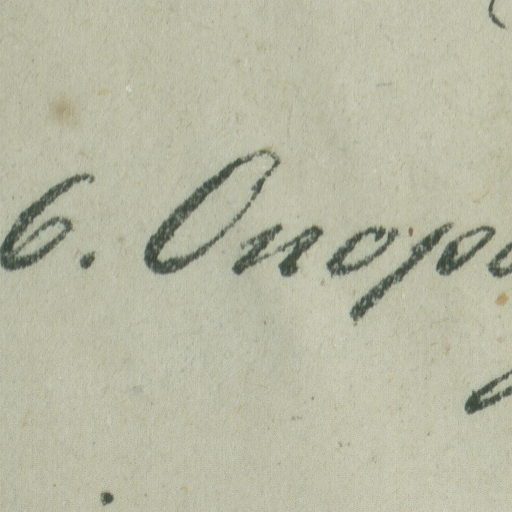 6. Опоро